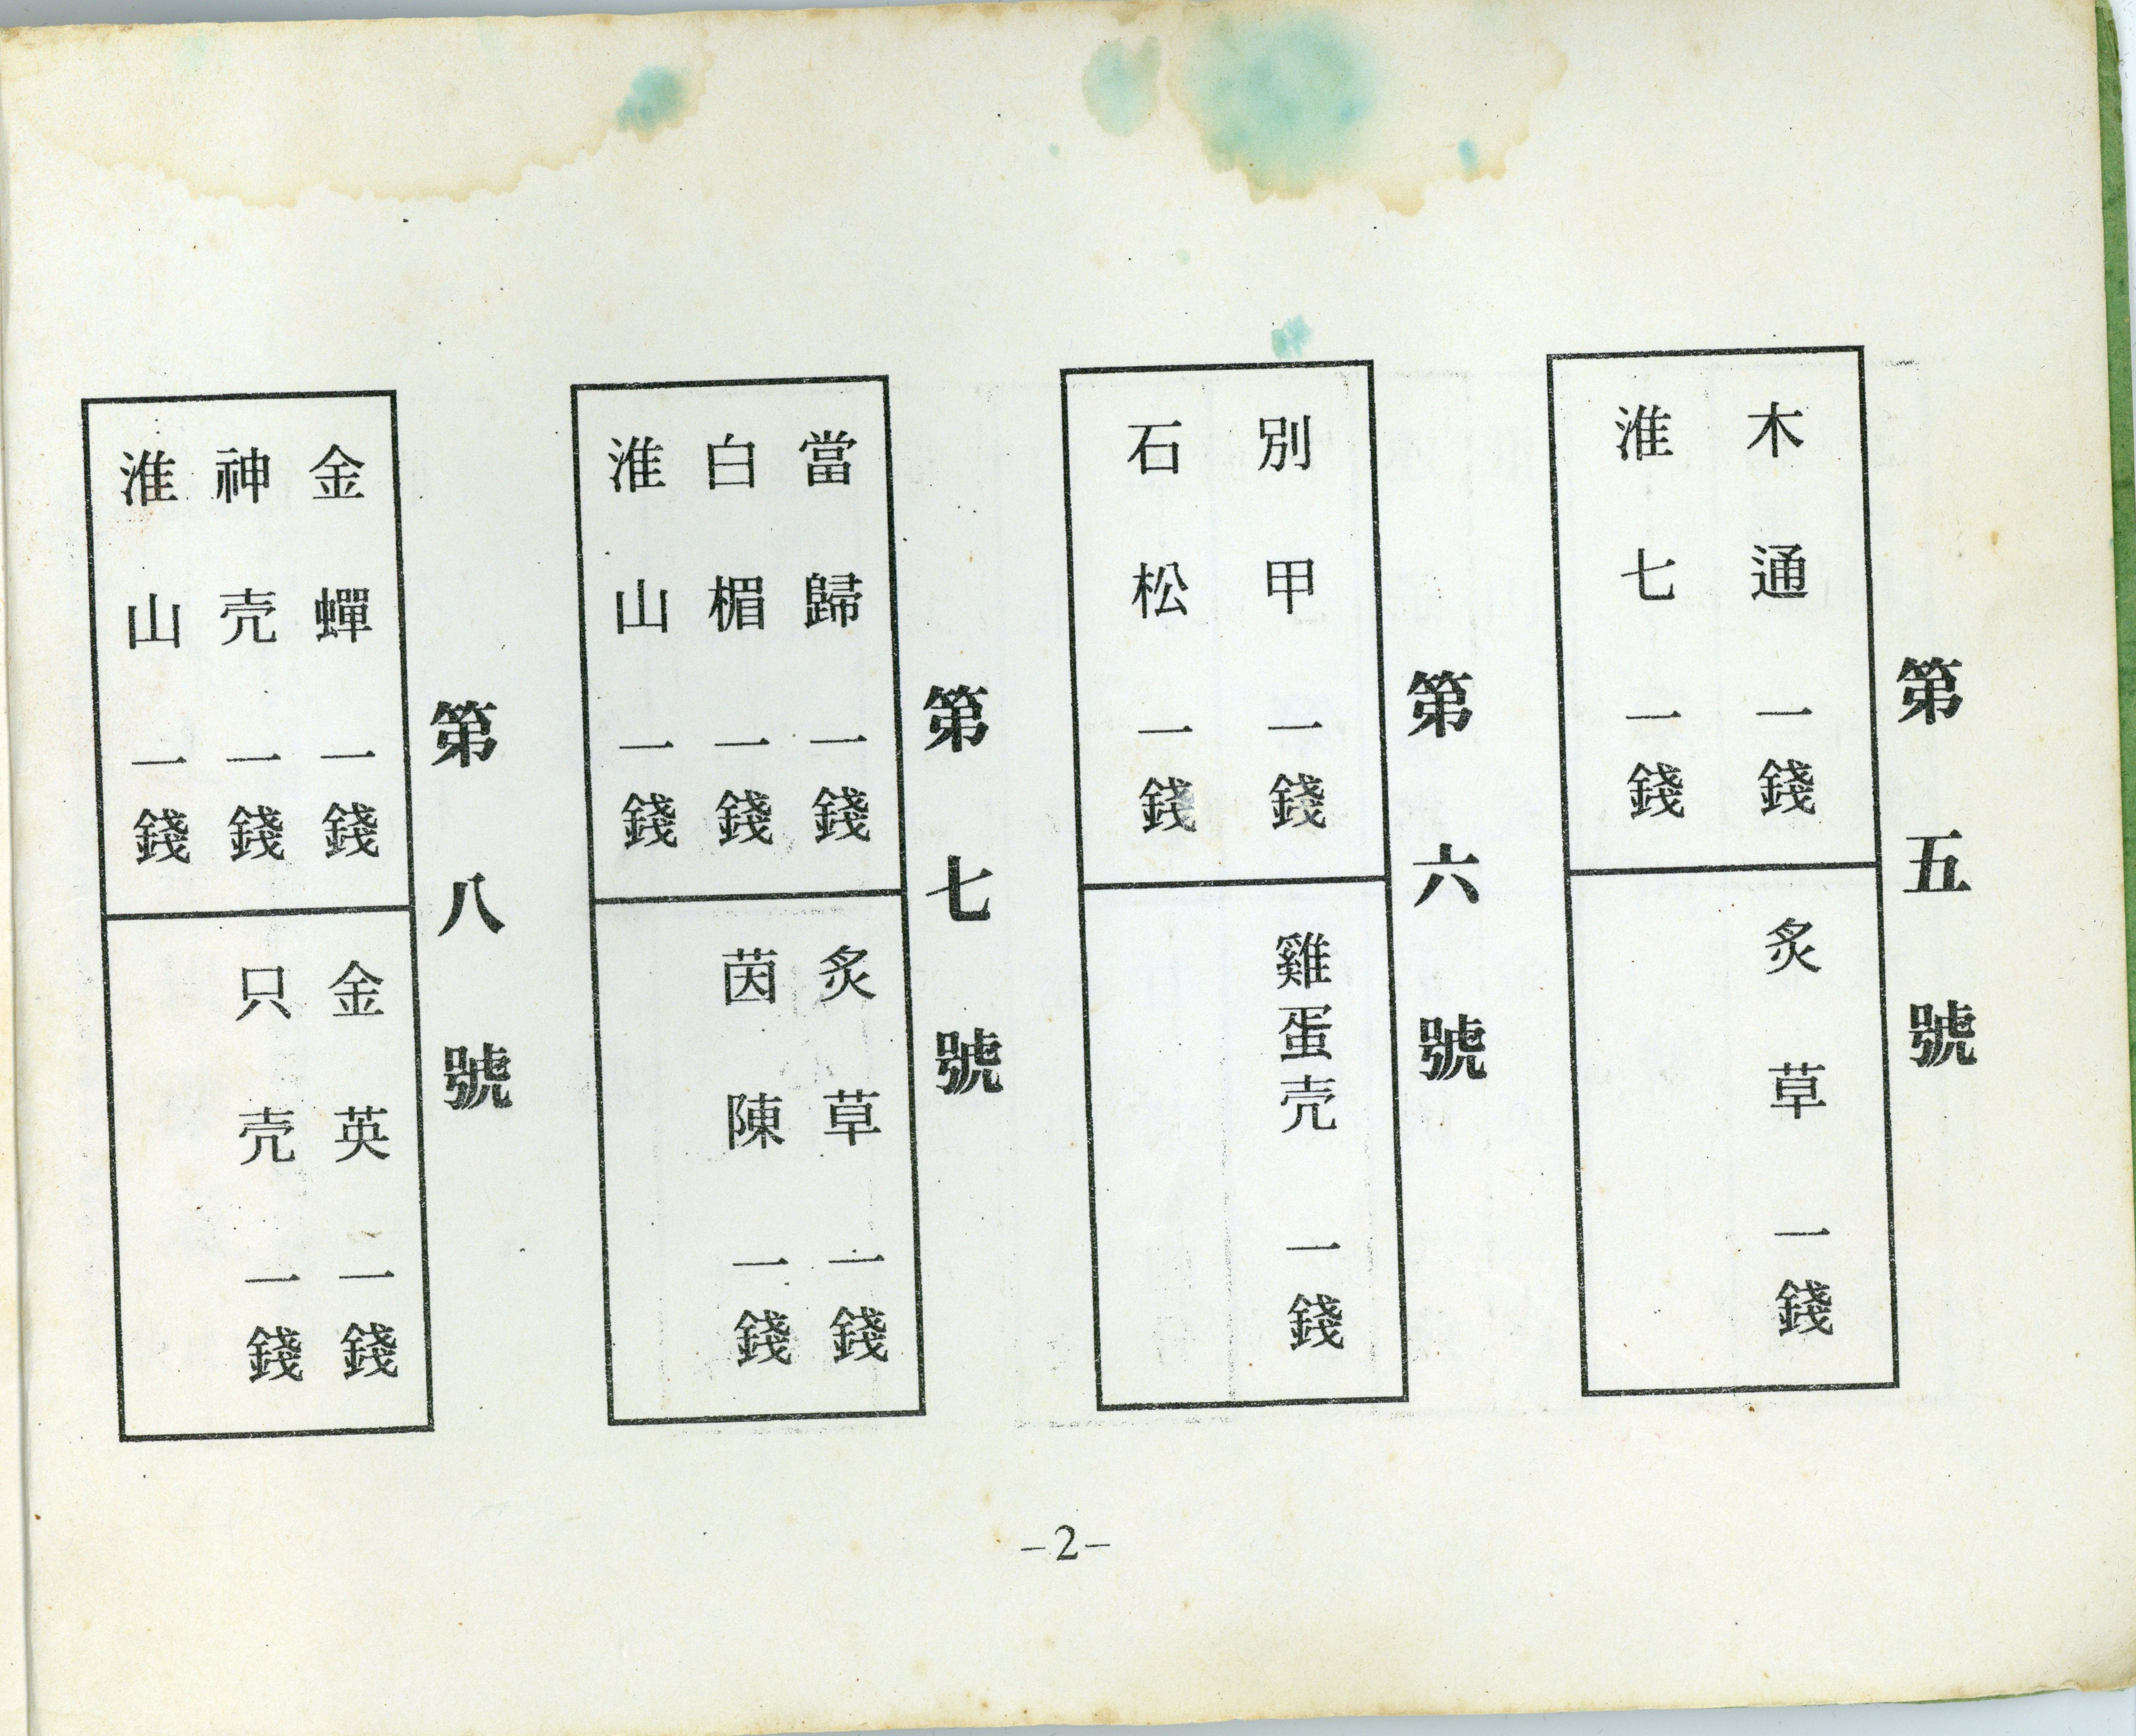 第五號
木通 一錢
淮七 一錢
炙草 一錢
第六號
別甲 一錢
石松 一錢
雞蛋壳 一錢
第七號
當歸 一錢
白楣 一錢
淮山 一錢
炙草 一錢
茵陳 一錢
第八號
金蟬 一錢
神壳 一錢
淮山 一錢
金英 一錢
只壳 一錢
–2–